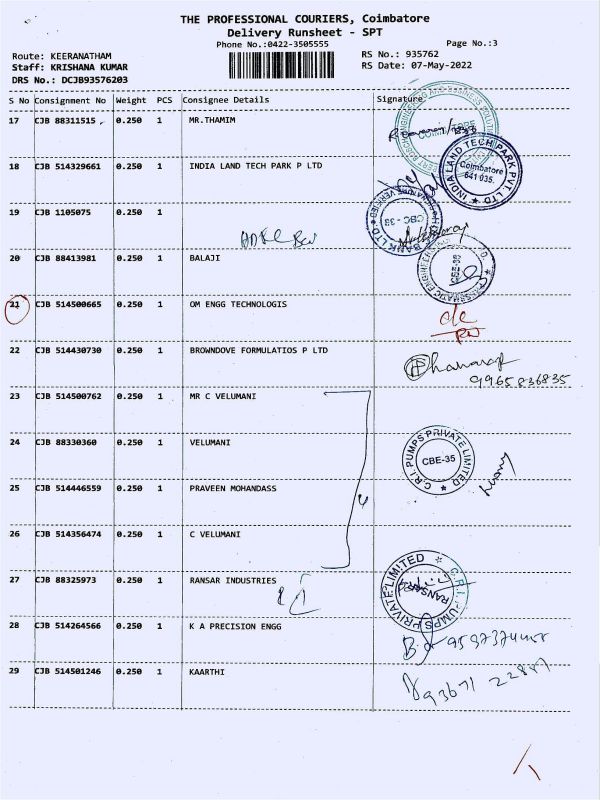 THE PROFESSIONAL COURIERS, Coimbatore
Delivery Runsheet - SPT
Phone No.:0422-3505555
Page No.:3
Route: KEERANATHAM
RS No.: 935762
Staff: KRISHANA KUMAR
RS Date: 07-May-2022
DRS No.: DCJB93576203
S No Consignment No Weight PCS Consignee Details Signature
17 CJB 88311515 0.250 1 MR.THAMIM
COIMBATORE
18 CJB 514329661 0.250 1 INDIA LAND TECH PARK P LTD
INDIA LAND TECH PARK PVT. LTD
Coimbatore
641 035.
19 CJB 1105075 0.250 1
CBC - 38
20 CJB 88413981 0.250 1 BALAJI
CBE-35
21 CJB 514500665 0.250 1 OM ENGG TECHNOLOGIS
22 CJB 514430730 0.250 1 BROWNDOVE FORMULATIOS P LTD
9965836835
23 CJB 514500762 0.250 1 MR C VELUMANI
24 CJB 88330360 0.250 1 VELUMANI
C.R.I. PUMPS PRIVATE LIMITED
CBE-35
25 CJB 514446559 0.250 1 PRAVEEN MOHANDASS
4
26 CJB 514356474 0.250 1 C VELUMANI
27 CJB 88325973 0.250 1 RANSAR INDUSTRIES
C.R.I. PUMPS PRIVATE LIMITED
RANSAR
28 CJB 514264566 0.250 1 K A PRECISION ENGG
29 CJB 514501246 0.250 1 KAARTHI